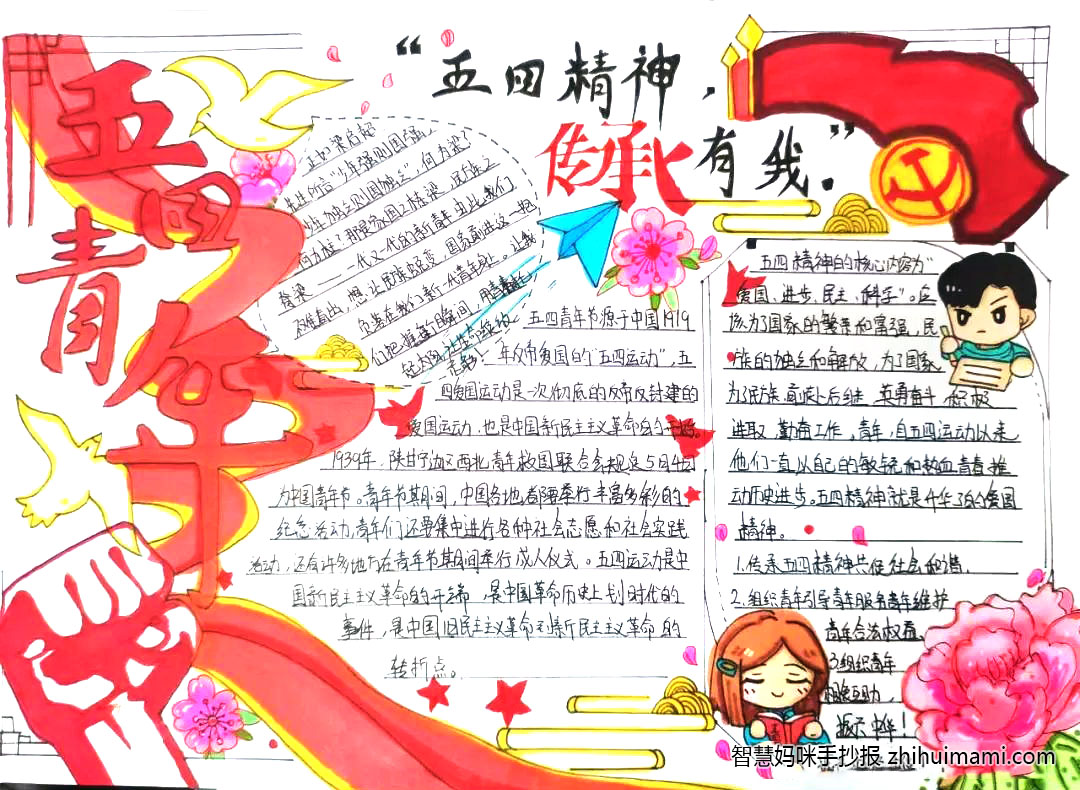 五四青年
“五四精神，
传承有我”。
正如梁启超
先生所言“少年强则国强，
少年独立则国独立”，何为梁？
何为柱？那是家国之栋梁，民族之
脊梁——一代又一代的新青年，由此我们
不难看出，想让民族蜕变，国家
们把握每个日瞬间，用青春
五四青年节源于中国1919
年反帝爱国的“五四运动”，五
四爱国运动是一次彻底的反帝反封建的
爱国运动，也是中国新民主主义革命的开始。
1939年，陕甘宁边区西北青年救国联合会规定5月4日
为中国青年节。青年节期间，中国各地都要举行丰富多彩的
纪念活动，青年们还要集中进行各种社会志愿和社会实践
活动，还有许多地方在青年节期间举行成人仪式。五四运动是中
国新民主主义革命的开端，是中国革命历史上划时代的
事件，是中国旧民主主义革命到新民主主义革命的
转折点。
五四精神的核心内容为“
爱国、进步、民主、科学”。应
该为了国家的繁荣和富强，民
族的独立和解放，为了国家
为了民族，前赴后继，英勇奋斗，积极
进取，勤奋工作。青年，自五四运动以来
他们一直以自己的敏锐和热血青春推
动历史进步。五四精神就是
精神。
1.传承五四精神共促社会和谐，
2.组织青年引导青年服务青年维护
青年合法权益，
3.组织青年
振兴中华！
智慧妈咪手抄报 zhihuimami.com